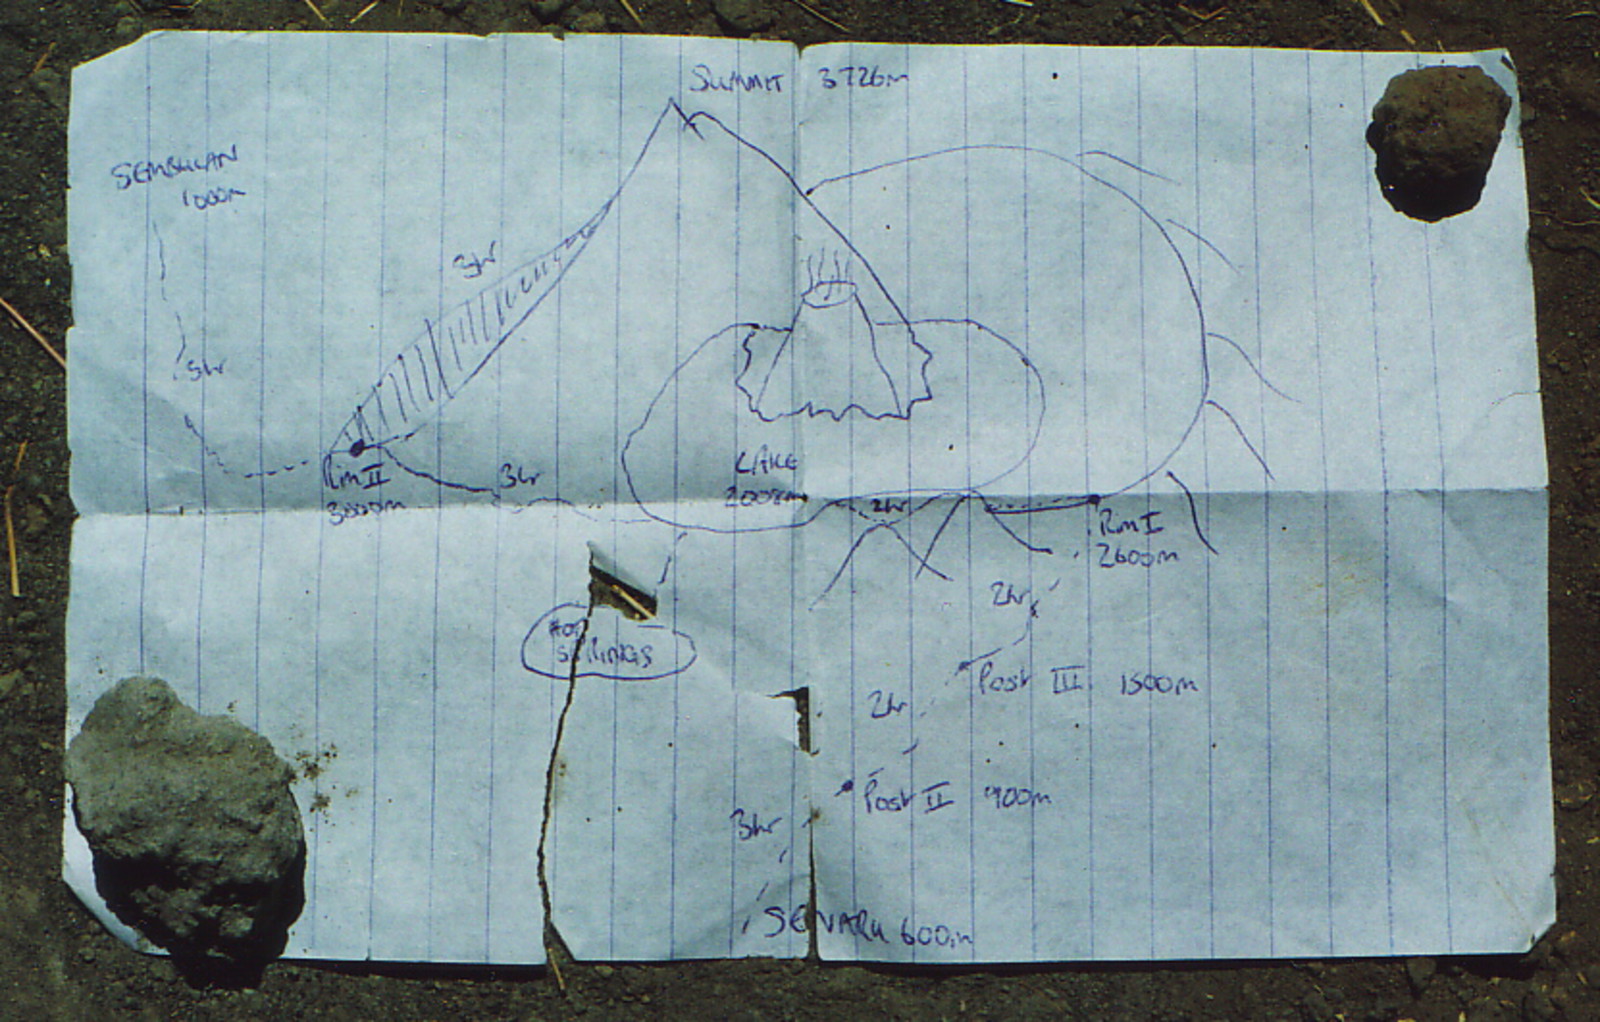 SUMMIT 3726m
SEMBULAN
1000m
3hr
5hr
Rim II
3000m
3hr
LAKE
2008m
2hr
Rim I
2600m
2hr
HOT
SPRINGS
Post III 1500m
2hr
Post II 900m
3hr
SENARU 600m